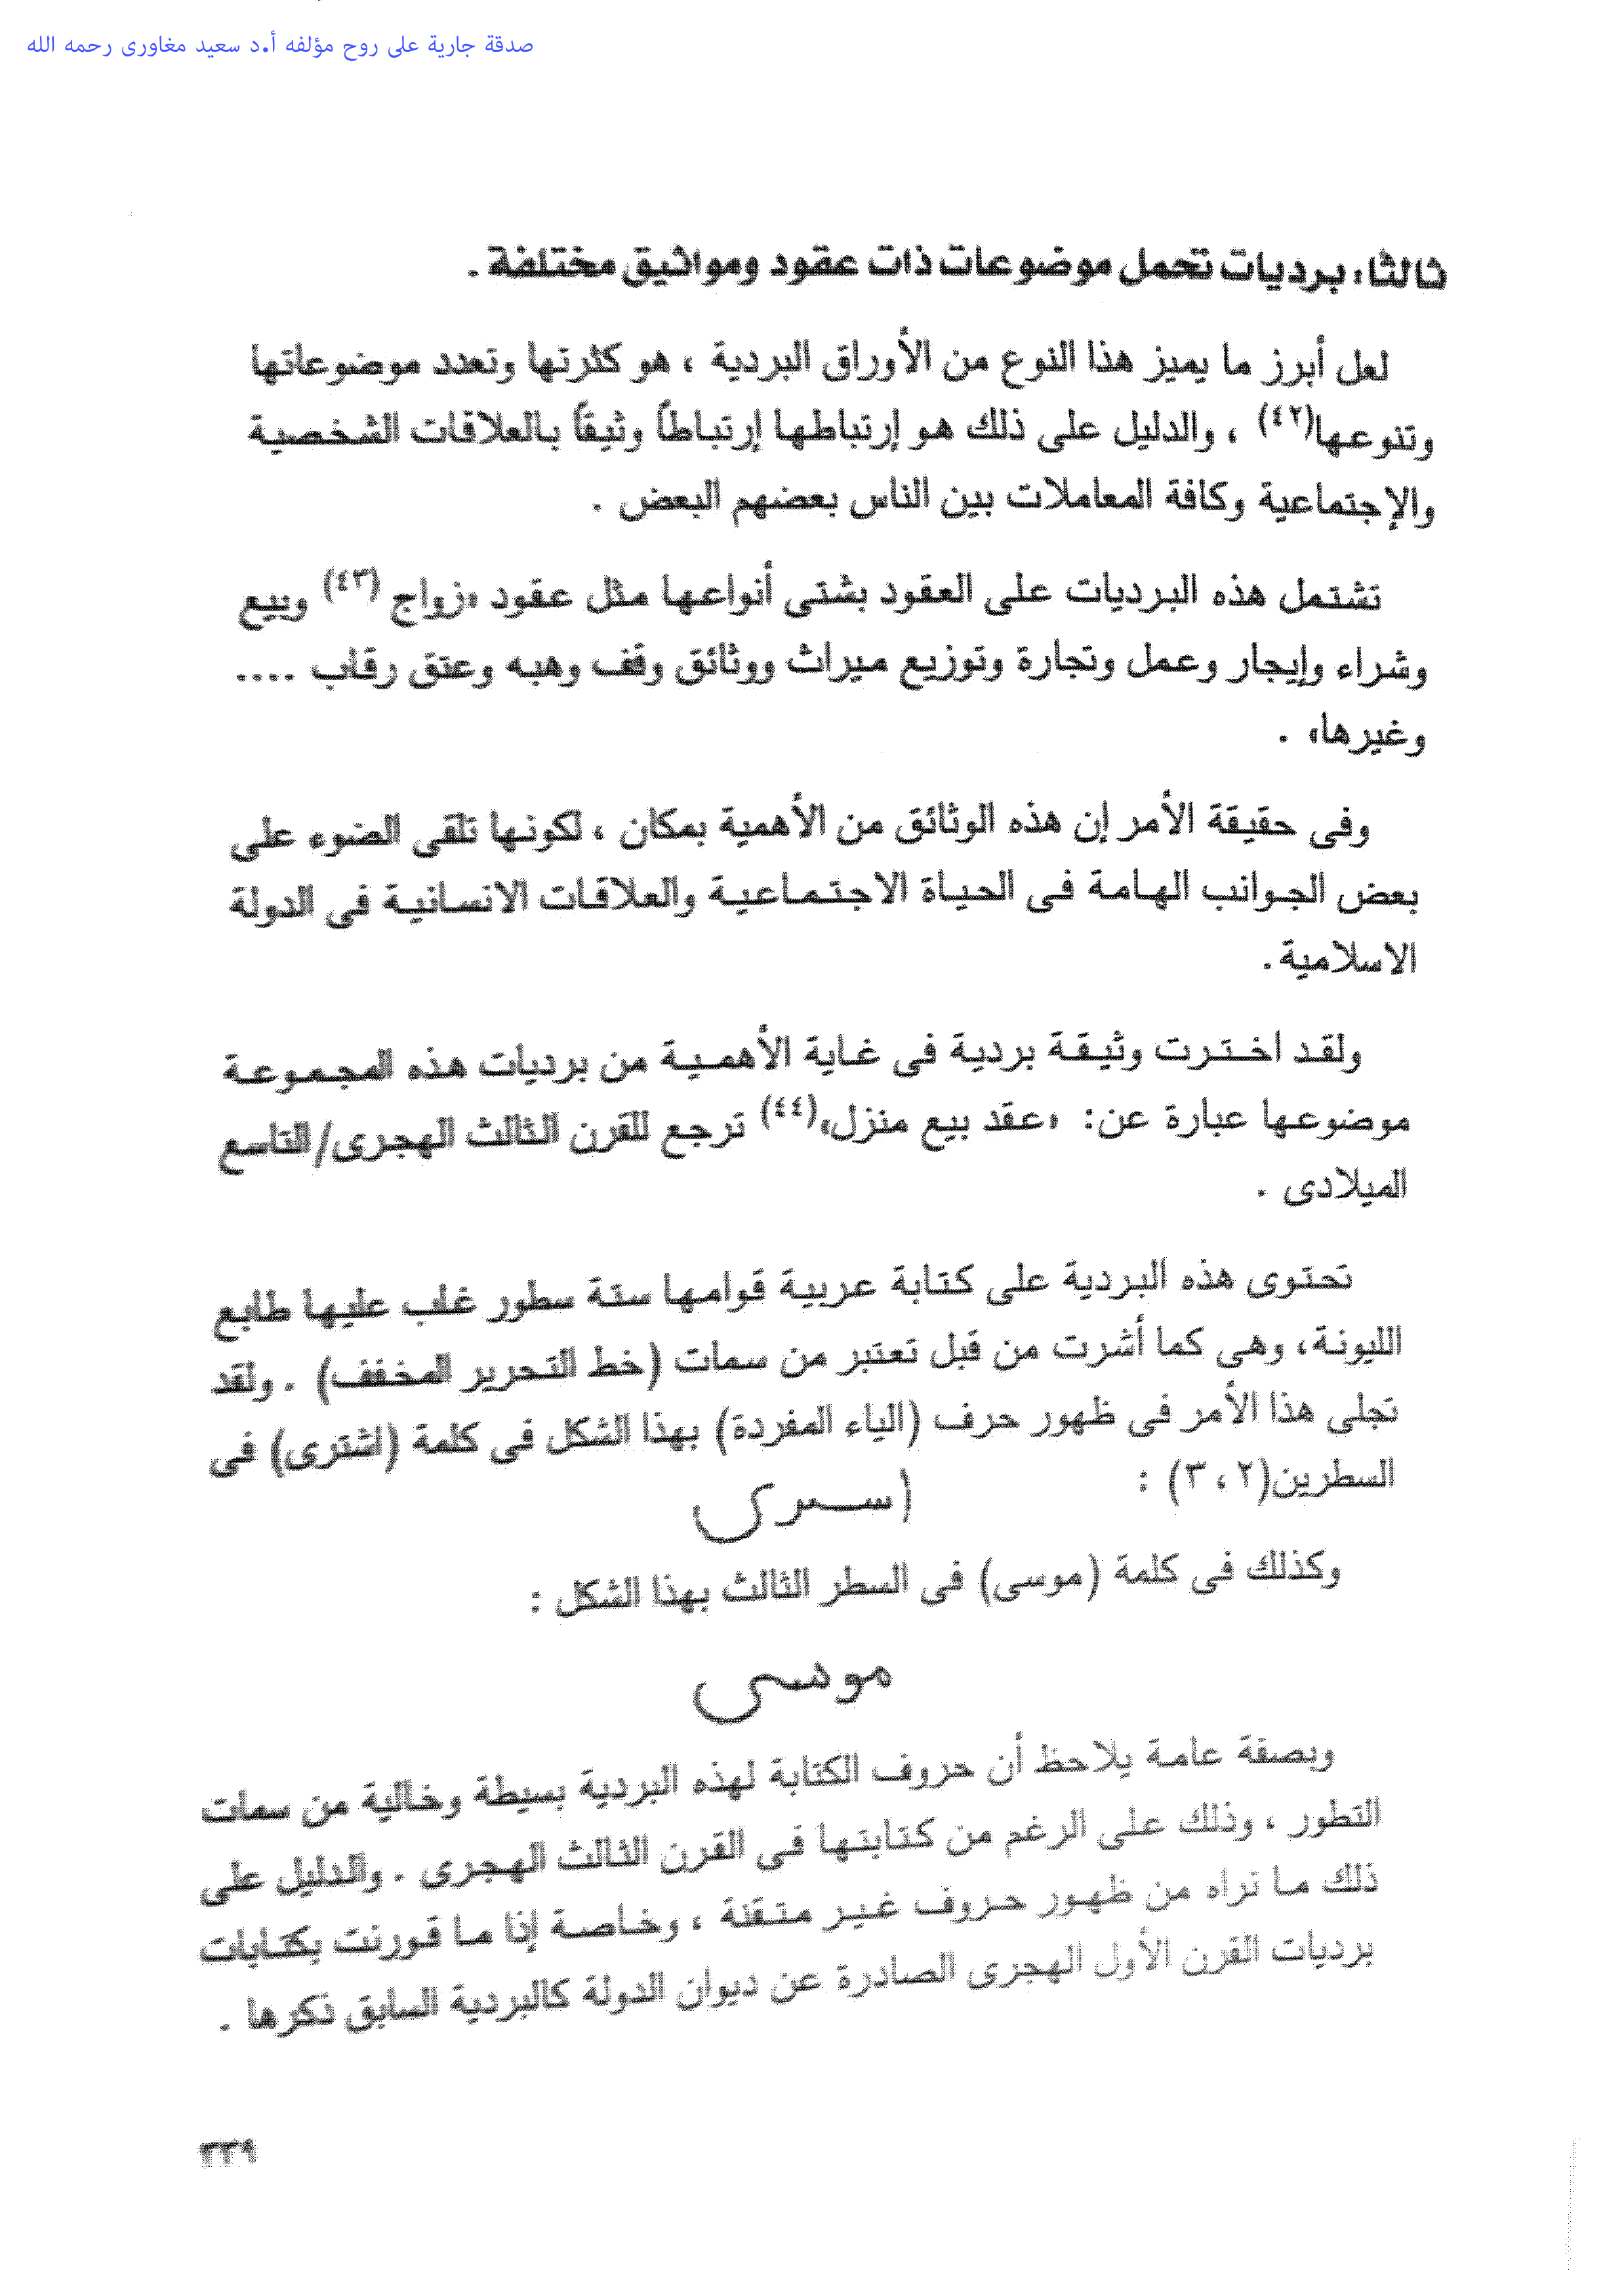 صدقة جارية على روح مؤلفه أ.د سعيد مغاورى رحمه الله
ثالثا: برديات تحمل موضوعات ذات عقود ومواثيق مختلفة .
لعل أبرز ما يميز هذا النوع من الأوراق البردية ، هو كثرتها وتعدد موضوعاتها
وتنوعها(٤٢) ، والدليل على ذلك هو إرتباطها إرتباطاً وثيقاً بالعلاقات الشخصية
والإجتماعية وكافة المعاملات بين الناس بعضهم البعض .
تشتمل هذه البرديات على العقود بشتى أنواعها مثل عقود «زواج (٤٣) وبيع
وشراء وإيجار وعمل وتجارة وتوزيع ميراث ووثائق وقف وهبه وعتق رقاب ....
وغيرها» .
وفى حقيقة الأمر إن هذه الوثائق من الأهمية بمكان ، لكونها تلقى الضوء على
بعض الجوانب الهامة فى الحياة الاجتماعية والعلاقات الانسانية فى الدولة
الاسلامية .
ولقد اخترت وثيقة بردية فى غاية الأهمية من برديات هذه المجموعة
موضوعها عبارة عن: «عقد بيع منزل»(٤٤) ترجع للقرن الثالث الهجرى/التاسع
الميلادى .
تحتوى هذه البردية على كتابة عربية قوامها ستة سطور غلب عليها طابع
الليونة، وهى كما أشرت من قبل تعتبر من سمات (خط التحرير المخفف) . ولقد
تجلى هذا الأمر فى ظهور حرف (الياء المفردة) بهذا الشكل فى كلمة (اشترى) فى
السطرين(٢ ، ٣) :
اسرى
وكذلك فى كلمة (موسى) فى السطر الثالث بهذا الشكل :
موسى
وبصفة عامة يلاحظ أن حروف الكتابة لهذه البردية بسيطة وخالية من سمات
التطور ، وذلك على الرغم من كتابتها فى القرن الثالث الهجرى . والدليل على
ذلك ما نراه من ظهور حروف غير متقنة ، وخاصة إذا ما قورنت بكتابات
برديات القرن الأول الهجرى الصادرة عن ديوان الدولة كالبردية السابق ذكرها .
٣٣٩